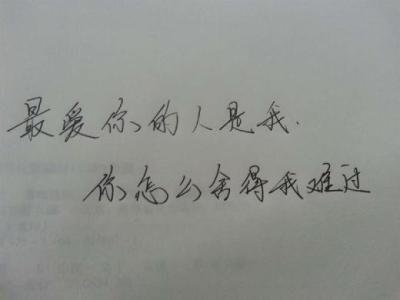 最爱你的人是我.
你怎么舍得我难过